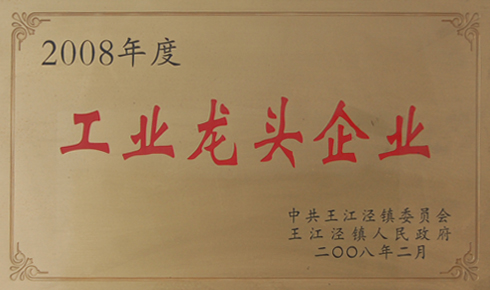 2008年度
工业龙头企业
中共王江泾镇委员会
王江泾镇人民政府
二〇〇八年二月